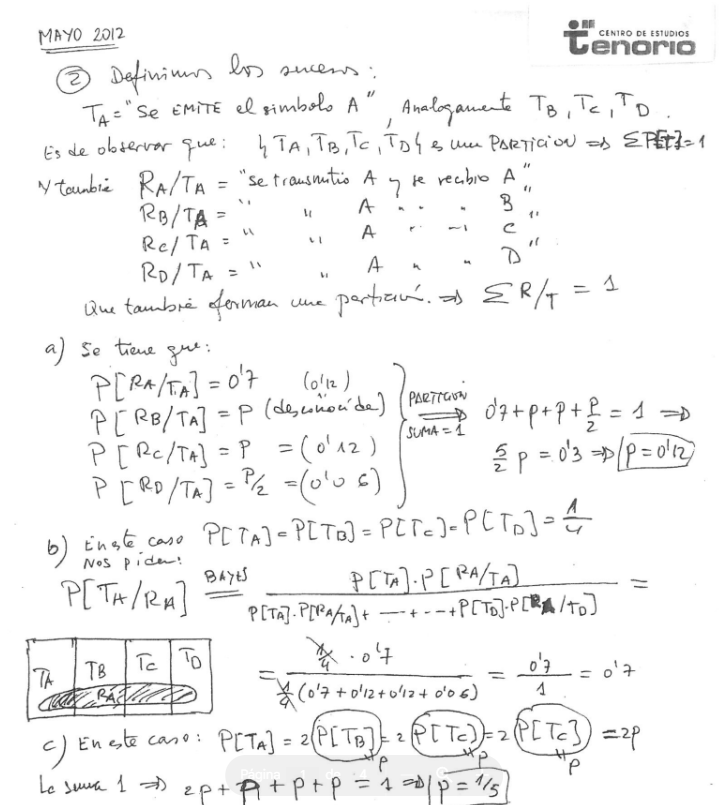 MAYO 2012
CENTRO DE ESTUDIOS
Tenorio
② Definimos los sucesos:
T_A = "Se EMITE el símbolo A", Analogamente T_B, T_C, T_D.
Es de observar que: {T_A, T_B, T_C, T_D} es una PARTICION ⇒ ΣP[T]=1
Y también R_A/T_A = "se transmitio A y se recibio A"
R_B/T_A = " " A " " B "
R_C/T_A = " " A " " C
R_D/T_A = " " A " " D "
Que también forman una partición. ⇒ Σ R/T = 1
a) Se tiene que:
P[R_A/T_A] = 0'7 (0'12)
P[R_B/T_A] = P (desconocida)
P[R_C/T_A] = P = (0'12)
P[R_D/T_A] = P/2 = (0'06)
PARTICIÓN ⇒ SUMA = 1
0'7 + p + p + p/2 = 1 ⇒
5/2 p = 0'3 ⇒ p = 0'12
b) En este caso P[T_A] = P[T_B] = P[T_C] = P[T_D] = 1/4
Nos piden:
P[T_A/R_A] BAYES = P[T_A]·P[R_A/T_A] / P[T_A]·P[R_A/T_A] + --- + --- + P[T_D]·P[R_A/T_D] =
T_A T_B T_C T_D
R_A
= 1/4 · 0'7 / 1/4 (0'7 + 0'12 + 0'12 + 0'06) = 0'7 / 1 = 0'7
c) En este caso: P[T_A] = 2 P[T_B] = 2 P[T_C] = 2 P[T_C] = 2p
"p "p "p
La suma 1 ⇒ 2p + p + p + p = 1 ⇒ p = 1/5
Página 1 de 4